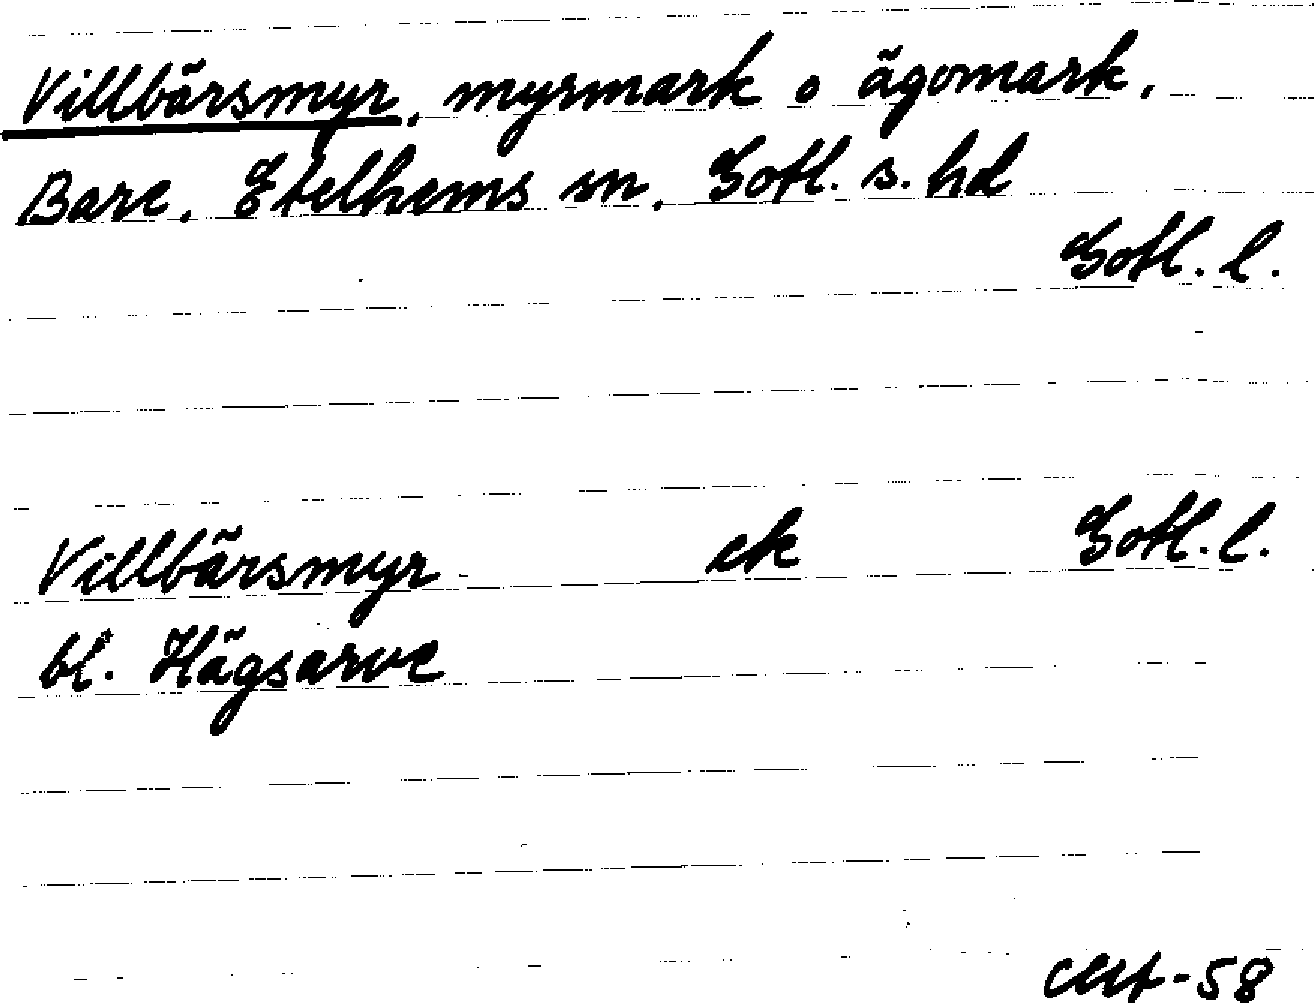 Villbärsmyr, myrmark o ägomark,
Bare, Etelhems sn, Gotl. s. hd
Gotl. l.
Villbärsmyr ek Gotl. l.
bl. Hägsarve
-58